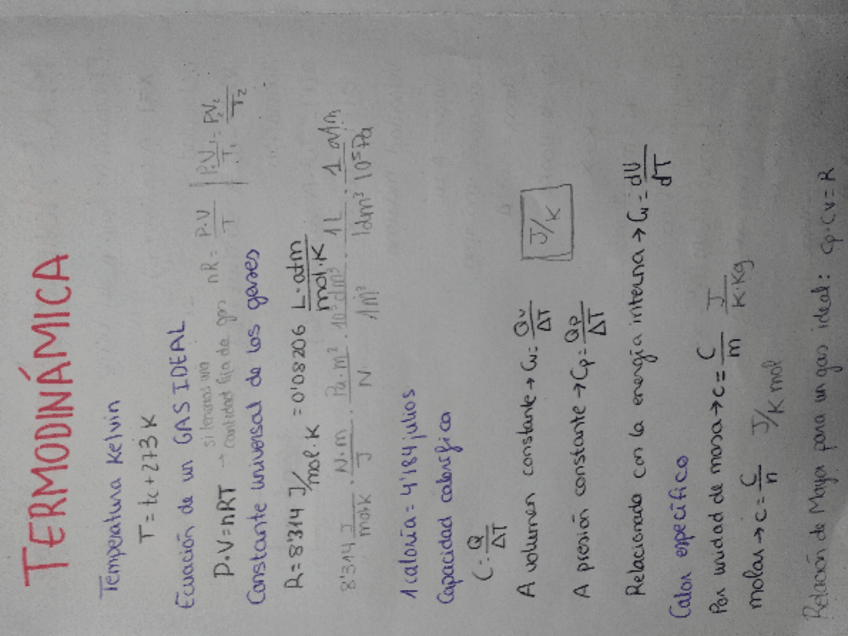 TERMODINÁMICA
Temperatura Kelvin
T = tc + 273 K
Ecuación de un GAS IDEAL
P·V = nRT → si tenemos una cantidad fija de gas nR = P·V/T | P₁V₁/T₁ = P₂V₂/T₂
Constante universal de los gases
R = 8'314 J/mol·K = 0'08206 L·atm/mol·K
8'314 J/mol·K · N·m/J · Pa·m²/N · 10³dm³/1m³ · 1L/1dm³ · 1 atm/10⁵Pa
1 caloría = 4'184 julios
Capacidad calorífica
C = Q/ΔT
A volumen constante → Cv = Qv/ΔT J/K
A presión constante → Cp = Qp/ΔT
Relacionado con la energía interna → Cv = dU/dT
Calor específico
Por unidad de masa → c = C/m J/K·Kg
molar → c = C/n J/K mol
Relación de Mayer para un gas ideal: Cp - Cv = R